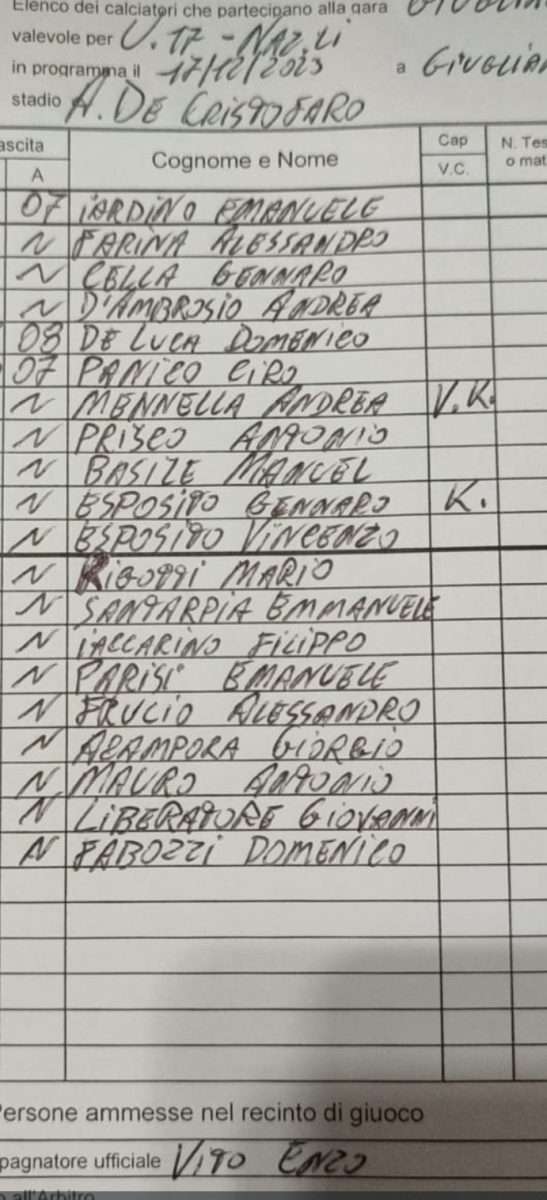 Elenco dei calciatori che partecipano alla gara
valevole per U. 17 - NAZ.LI
in programma il 17/12/2023 a GIUGLIAN
stadio A. DE CRISTOFARO
ascita Cognome e Nome Cap N. Tes
A V.C. o mat
07 IARDINO EMANUELE
N FARINA ALESSANDRO
N CELLA GENNARO
N D'AMBROSIO ANDREA
08 DE LUCA DOMENICO
07 PANICO CIRO
N MENNELLA ANDREA V.K.
N PRISCO ANTONIO
N BASILE MANUEL
N ESPOSITO GENNARO K.
N ESPOSITO VINCENZO
N RIGOTTI MARIO
N SANTARPIA EMMANUELE
N IACCARINO FILIPPO
N PARISI EMANUELE
N FRUCIO ALESSANDRO
N AZAMPORA GIORGIO
N MAURO ANTONIO
N LIBERATORE GIOVANNI
N FABOZZI DOMENICO
Persone ammesse nel recinto di giuoco
pagnatore ufficiale VITO ENZO
all'Arbitro